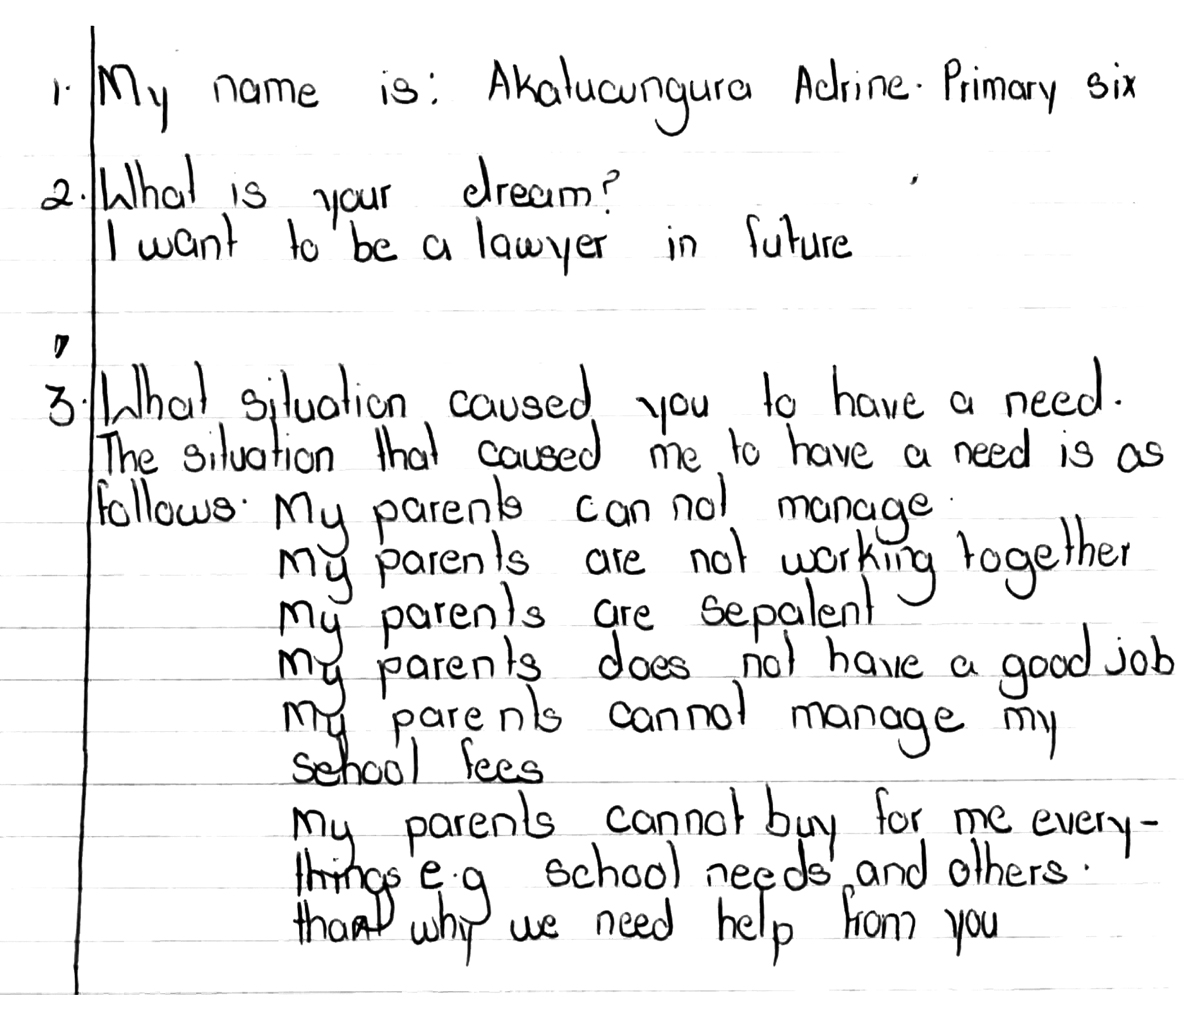 1. My name is: Akatucungura Adrine. Primary six
2. What is your dream?
I want to be a lawyer in future
3. What situation caused you to have a need.
The situation that caused me to have a need is as
follows. My parents can not manage.
My parents are not working together
My parents are sepalent
My parents does not have a good job
My parents cannot manage my
school fees
My parents cannot buy for me every-
things e.g school needs and others.
why we need help from you